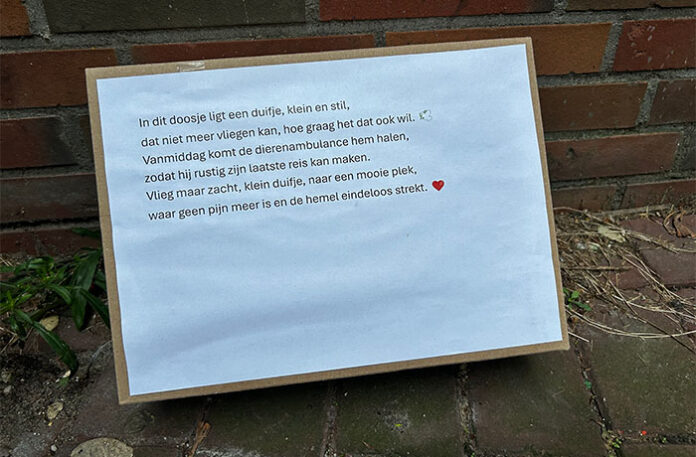 In dit doosje ligt een duifje, klein en stil,
dat niet meer vliegen kan, hoe graag het dat ook wil. 🕊️
Vanmiddag komt de dierenambulance hem halen,
zodat hij rustig zijn laatste reis kan maken.
Vlieg maar zacht, klein duifje, naar een mooie plek,
waar geen pijn meer is en de hemel eindeloos strekt. ❤️